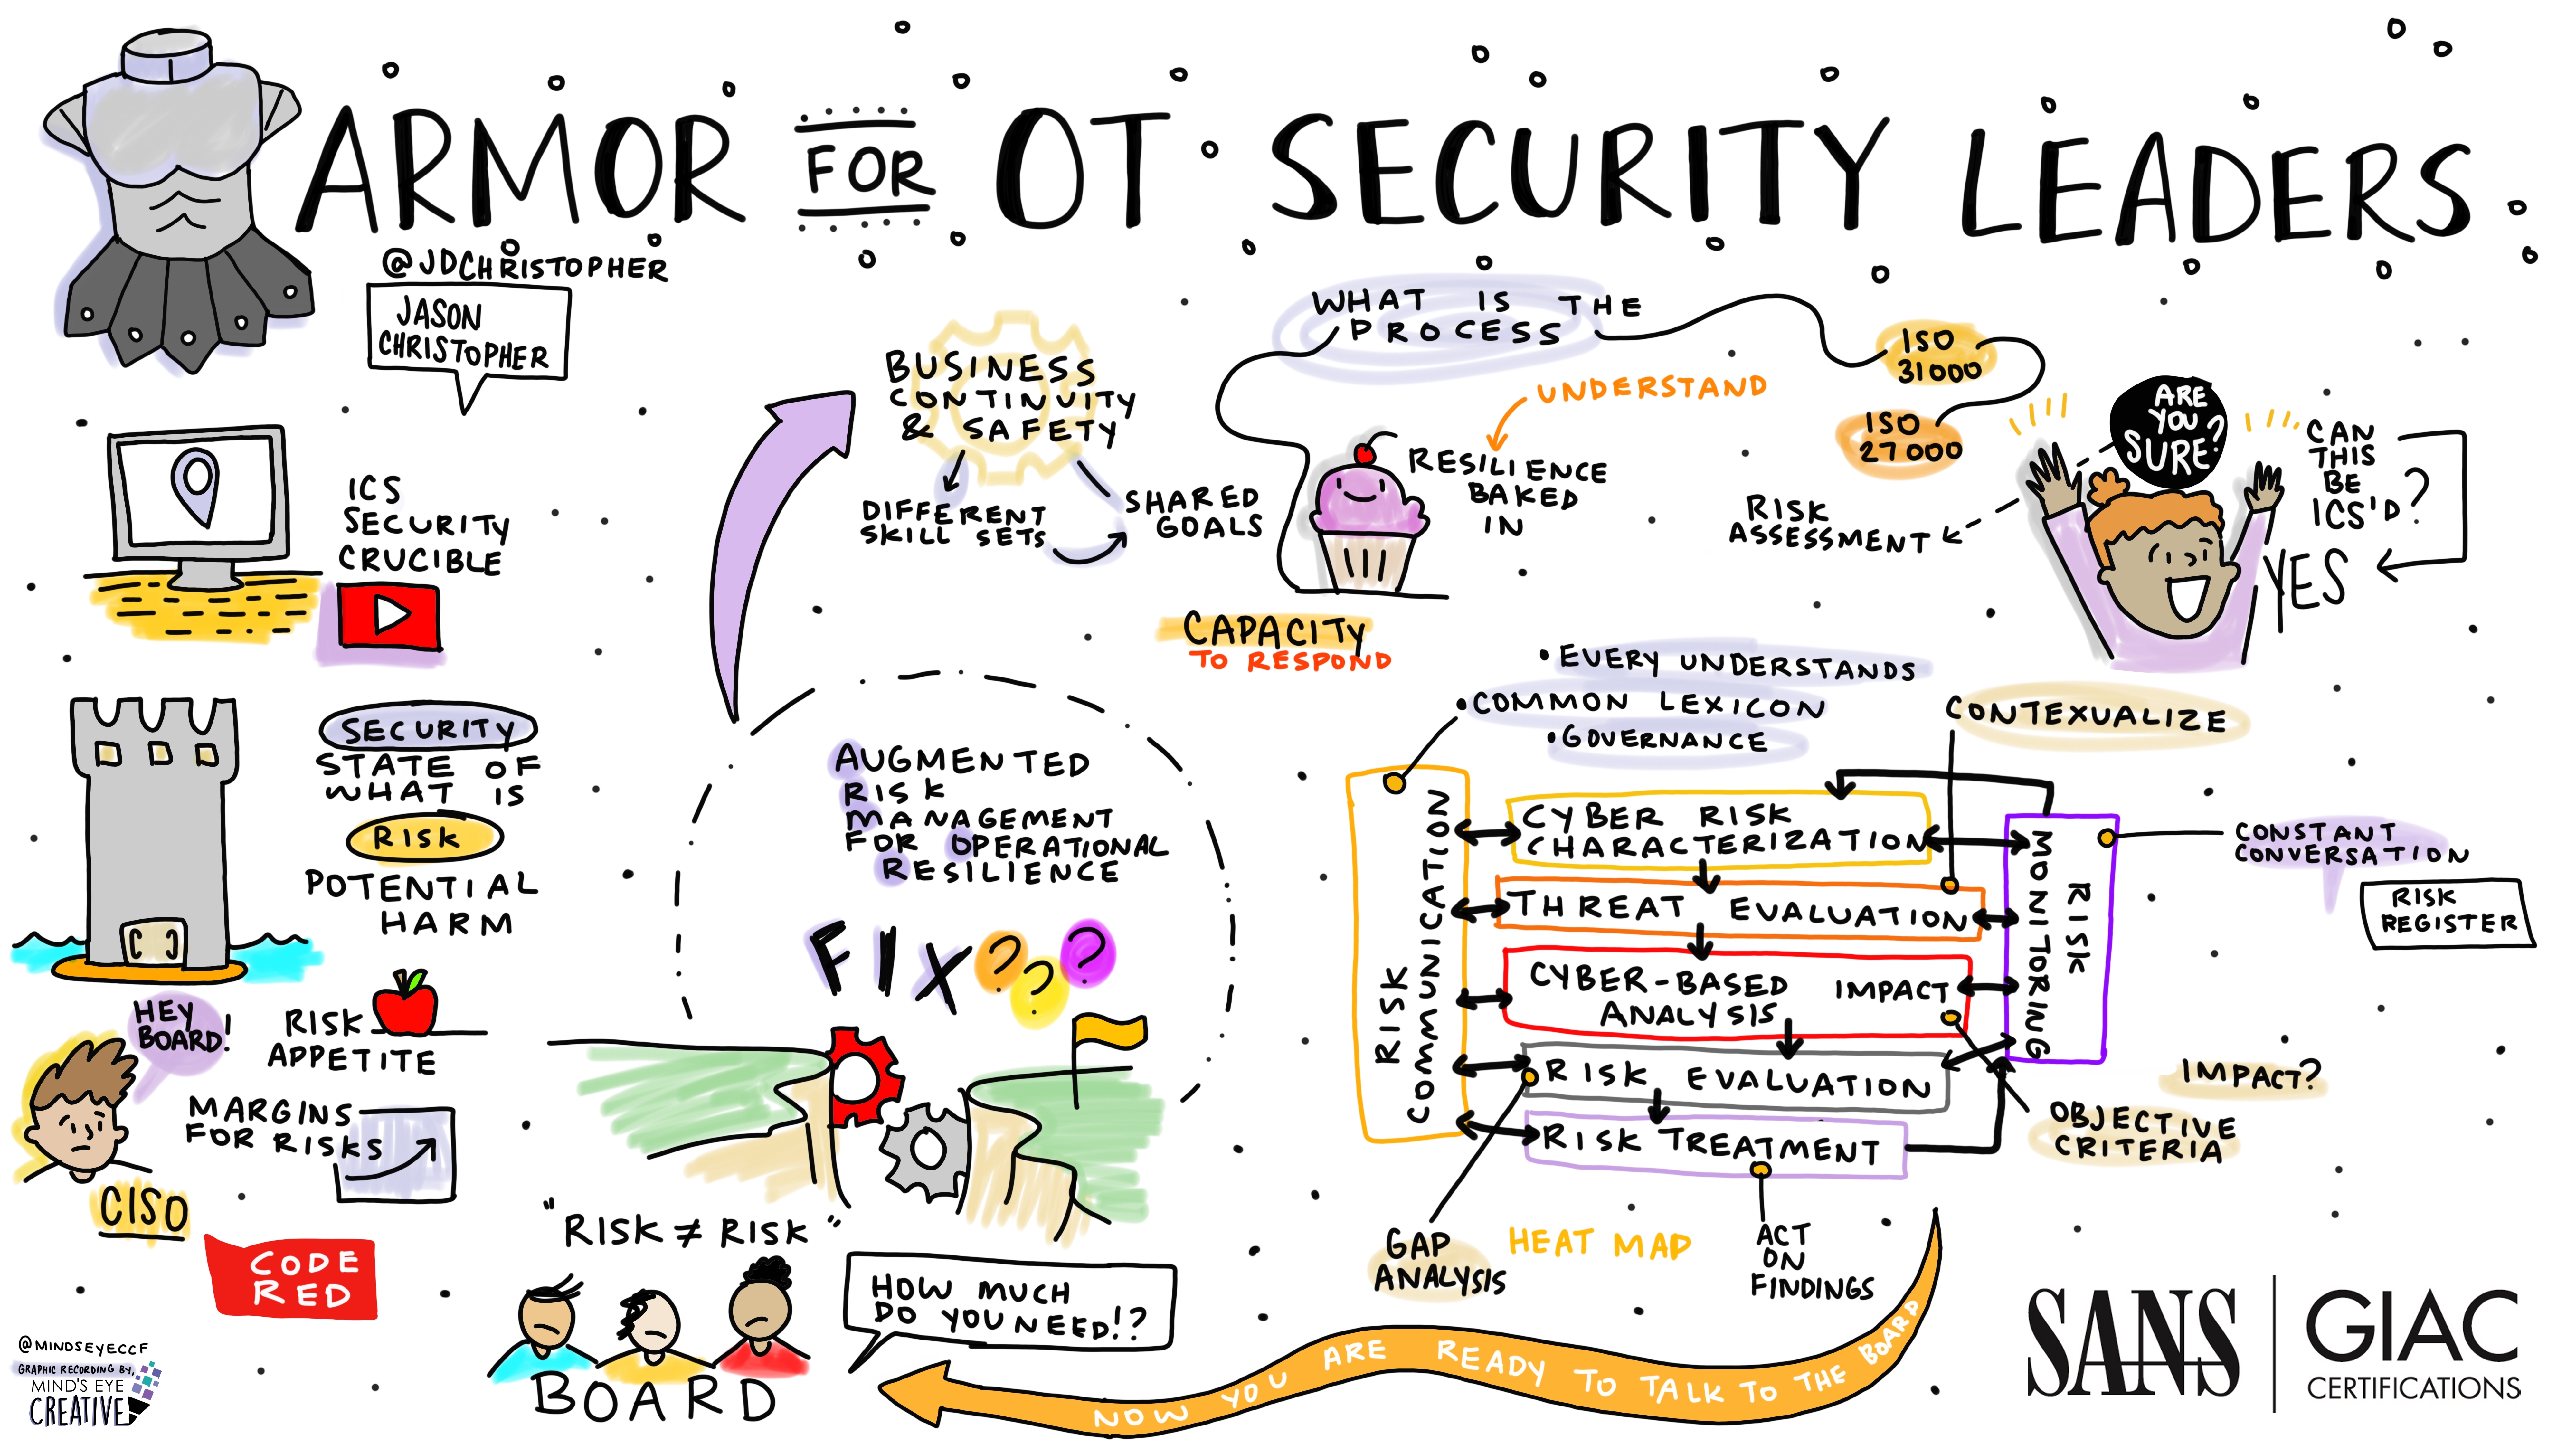 ARMOR FOR OT SECURITY LEADERS
@JDCHRISTOPHER
JASON
CHRISTOPHER
ICS
SECURITY
CRUCIBLE
SECURITY
STATE OF
WHAT IS
RISK
POTENTIAL
HARM
HEY
BOARD!
RISK
APPETITE
MARGINS
FOR RISKS
CISO
CODE
RED
@MINDSEYECCF
GRAPHIC RECORDING BY,
MIND'S EYE
CREATIVE
BUSINESS
CONTINUITY
& SAFETY
DIFFERENT
SKILL SETS
SHARED
GOALS
AUGMENTED
RISK
MANAGEMENT
FOR OPERATIONAL
RESILIENCE
FIX???
"RISK ≠ RISK"
HOW MUCH
DO YOU NEED!?
BOARD
WHAT IS THE
PROCESS
UNDERSTAND
RESILIENCE
BAKED
IN
CAPACITY
TO RESPOND
ISO
31000
ISO
27000
RISK
ASSESSMENT
ARE
YOU
SURE?
CAN
THIS
BE
ICS'D?
YES
•EVERY UNDERSTANDS
•COMMON LEXICON
•GOVERNANCE
CONTEXUALIZE
RISK
COMMUNICATION
CYBER RISK
CHARACTERIZATION
THREAT EVALUATION
CYBER-BASED IMPACT
ANALYSIS
RISK EVALUATION
RISK TREATMENT
RISK
MONITORING
CONSTANT
CONVERSATION
RISK
REGISTER
IMPACT?
OBJECTIVE
CRITERIA
GAP
ANALYSIS
HEAT MAP
ACT
ON
FINDINGS
NOW YOU ARE READY TO TALK TO THE BOARD
SANS
GIAC
CERTIFICATIONS